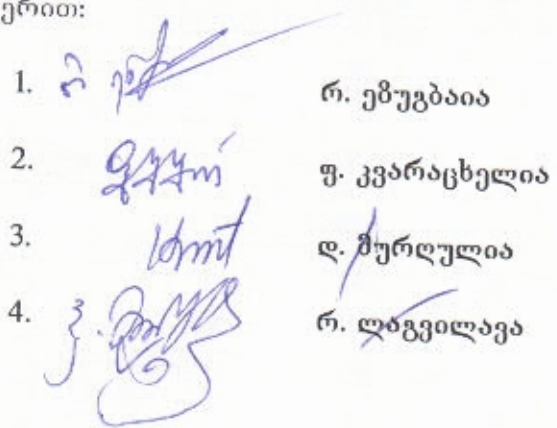 ერით:
1. რ. ეზუგბაია
2. ფ. კვარაცხელია
3. დ. შურღულია
4. რ. ლაგვილავა